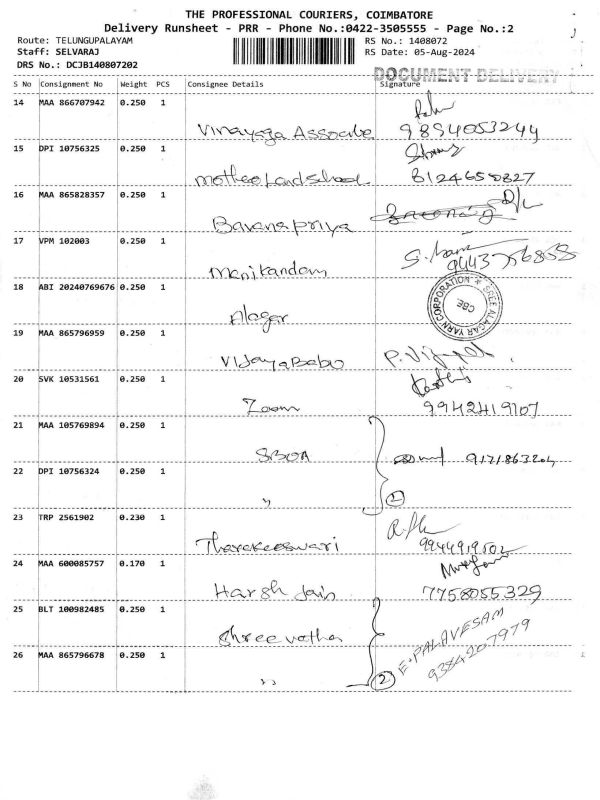 THE PROFESSIONAL COURIERS, COIMBATORE
Delivery Runsheet - PRR - Phone No.:0422-3505555 - Page No.:2
Route: TELUNGUPALAYAM RS No.: 1408072
Staff: SELVARAJ RS Date: 05-Aug-2024
DRS No.: DCJB140807202
DOCUMENT DELIVERY
S No Consignment No Weight PCS Consignee Details Signature
14 MAA 866707942 0.250 1
Vinayaga Associate 9894053244
15 DPI 10756325 0.250 1
motherland school 8124658827
16 MAA 865828357 0.250 1
Bavanapriya
17 VPM 102003 0.250 1
Manikandam 9443756858
18 ABI 20240769676 0.250 1
Alagar
SREE ALAGAR YARN CORPORATION * CBE
19 MAA 865796959 0.250 1
VijayaBabu
20 SVK 10531561 0.250 1
Zoom 9942419107
21 MAA 105769894 0.250 1
SBOA
22 DPI 10756324 0.250 1
" 2
23 TRP 2561902 0.230 1
Tharakeeswari 9944919502
24 MAA 600085757 0.170 1
Harsh Jain 7758055329
25 BLT 100982485 0.250 1
Shree vatha E. PALAVESAM
26 MAA 865796678 0.250 1
" 2 9384207979